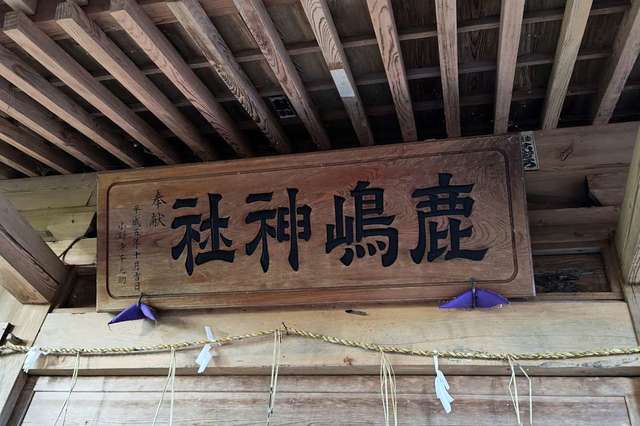 鹿嶋神社
奉献
平成五年十月吉日